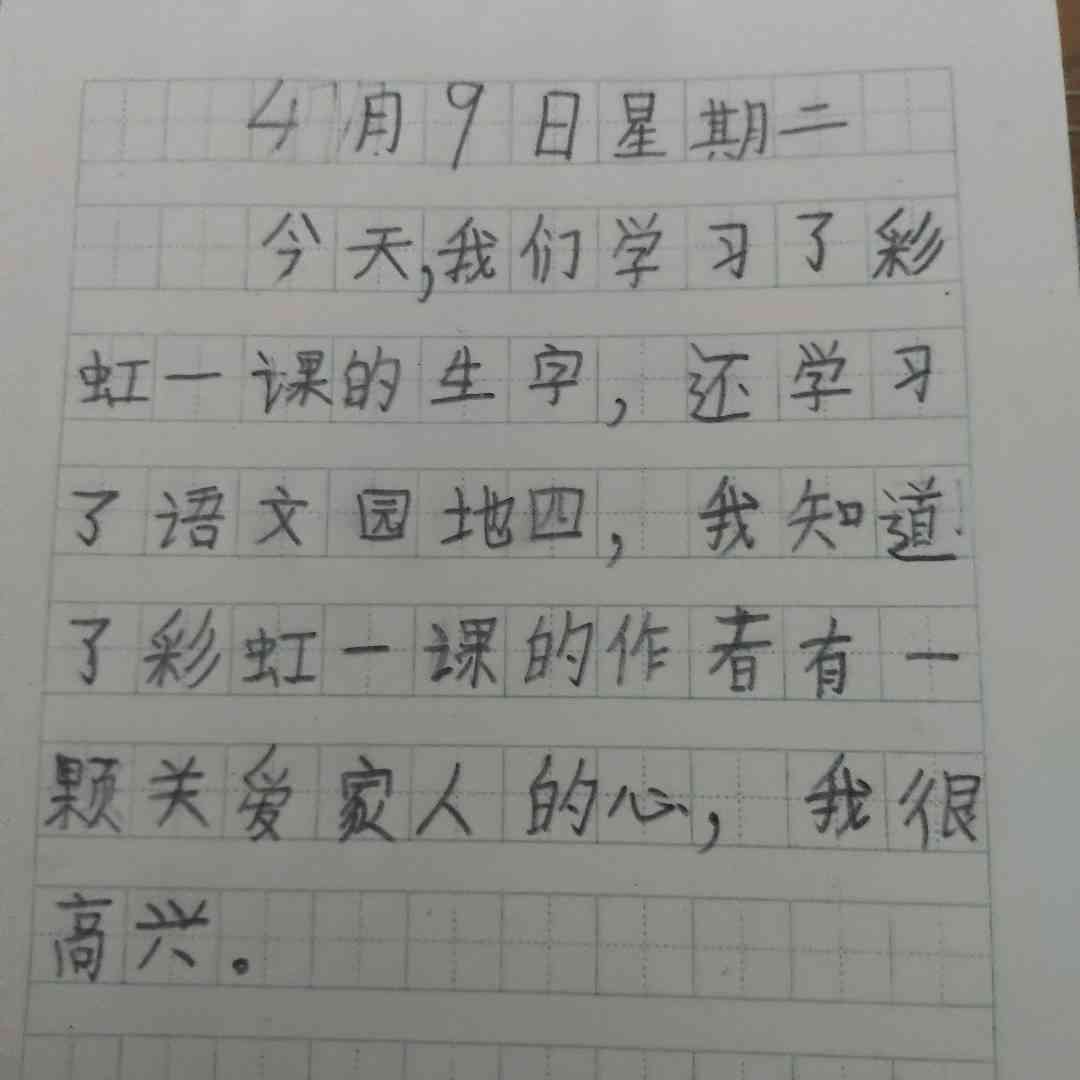 4月9日星期二
今天,我们学习了彩
虹一课的生字,还学习
了语文园地四,我知道
了彩虹一课的作者有一
颗关爱家人的心,我很
高兴。